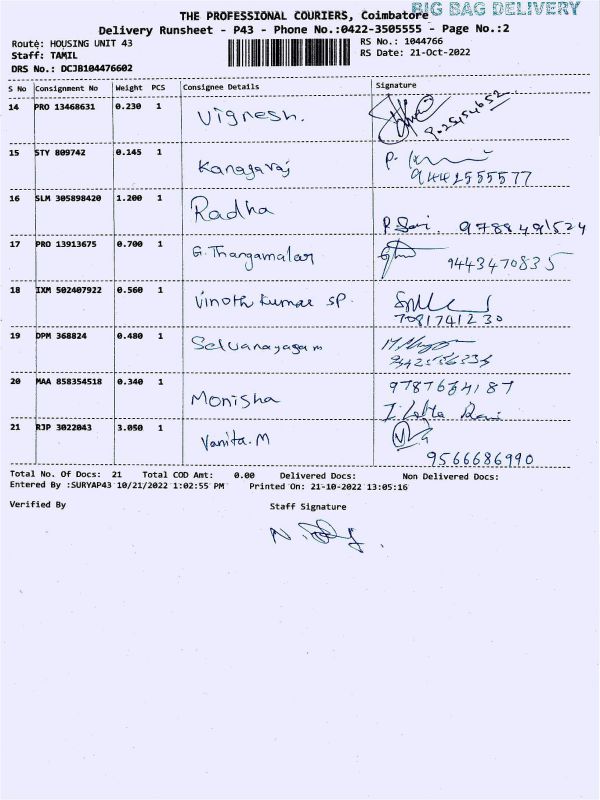 BIG BAG DELIVERY
THE PROFESSIONAL COURIERS, Coimbatore
Delivery Runsheet - P43 - Phone No.:0422-3505555 - Page No.:2
Route: HOUSING UNIT 43 RS No.: 1044766
Staff: TAMIL RS Date: 21-Oct-2022
DRS No.: DCJB104476602
S No Consignment No Weight PCS Consignee Details Signature
14 PRO 13468631 0.230 1 Vignesh.
15 STY 809742 0.145 1 Kanagaraj
9442555577
16 SLM 305898420 1.200 1 Radha
9788491524
17 PRO 13913675 0.700 1 G. Thangamalar 9443470835
18 IXM 502407922 0.560 1 Vinoth kumar SP.
7081741230
19 DPM 368824 0.480 1 Selvanayagam
20 MAA 858354518 0.340 1 Monisha
21 RJP 3022043 3.050 1 Vanita.M
9566686990
Total No. Of Docs: 21 Total COD Amt: 0.00 Delivered Docs: Non Delivered Docs:
Entered By :SURYAP43 10/21/2022 1:02:55 PM Printed On: 21-10-2022 13:05:16
Verified By Staff Signature